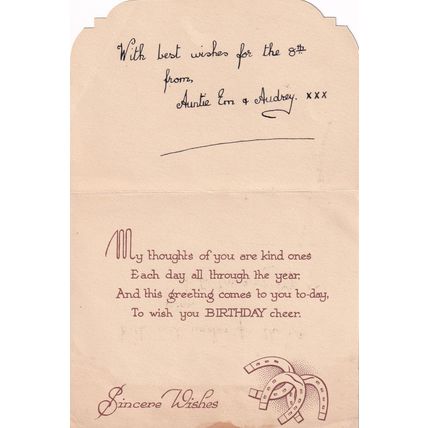 With best wishes for the 8th
from,
Auntie Em & Audrey. xxx
My thoughts of you are kind ones
Each day all through the year,
And this greeting comes to you to-day,
To wish you BIRTHDAY cheer.
Sincere Wishes